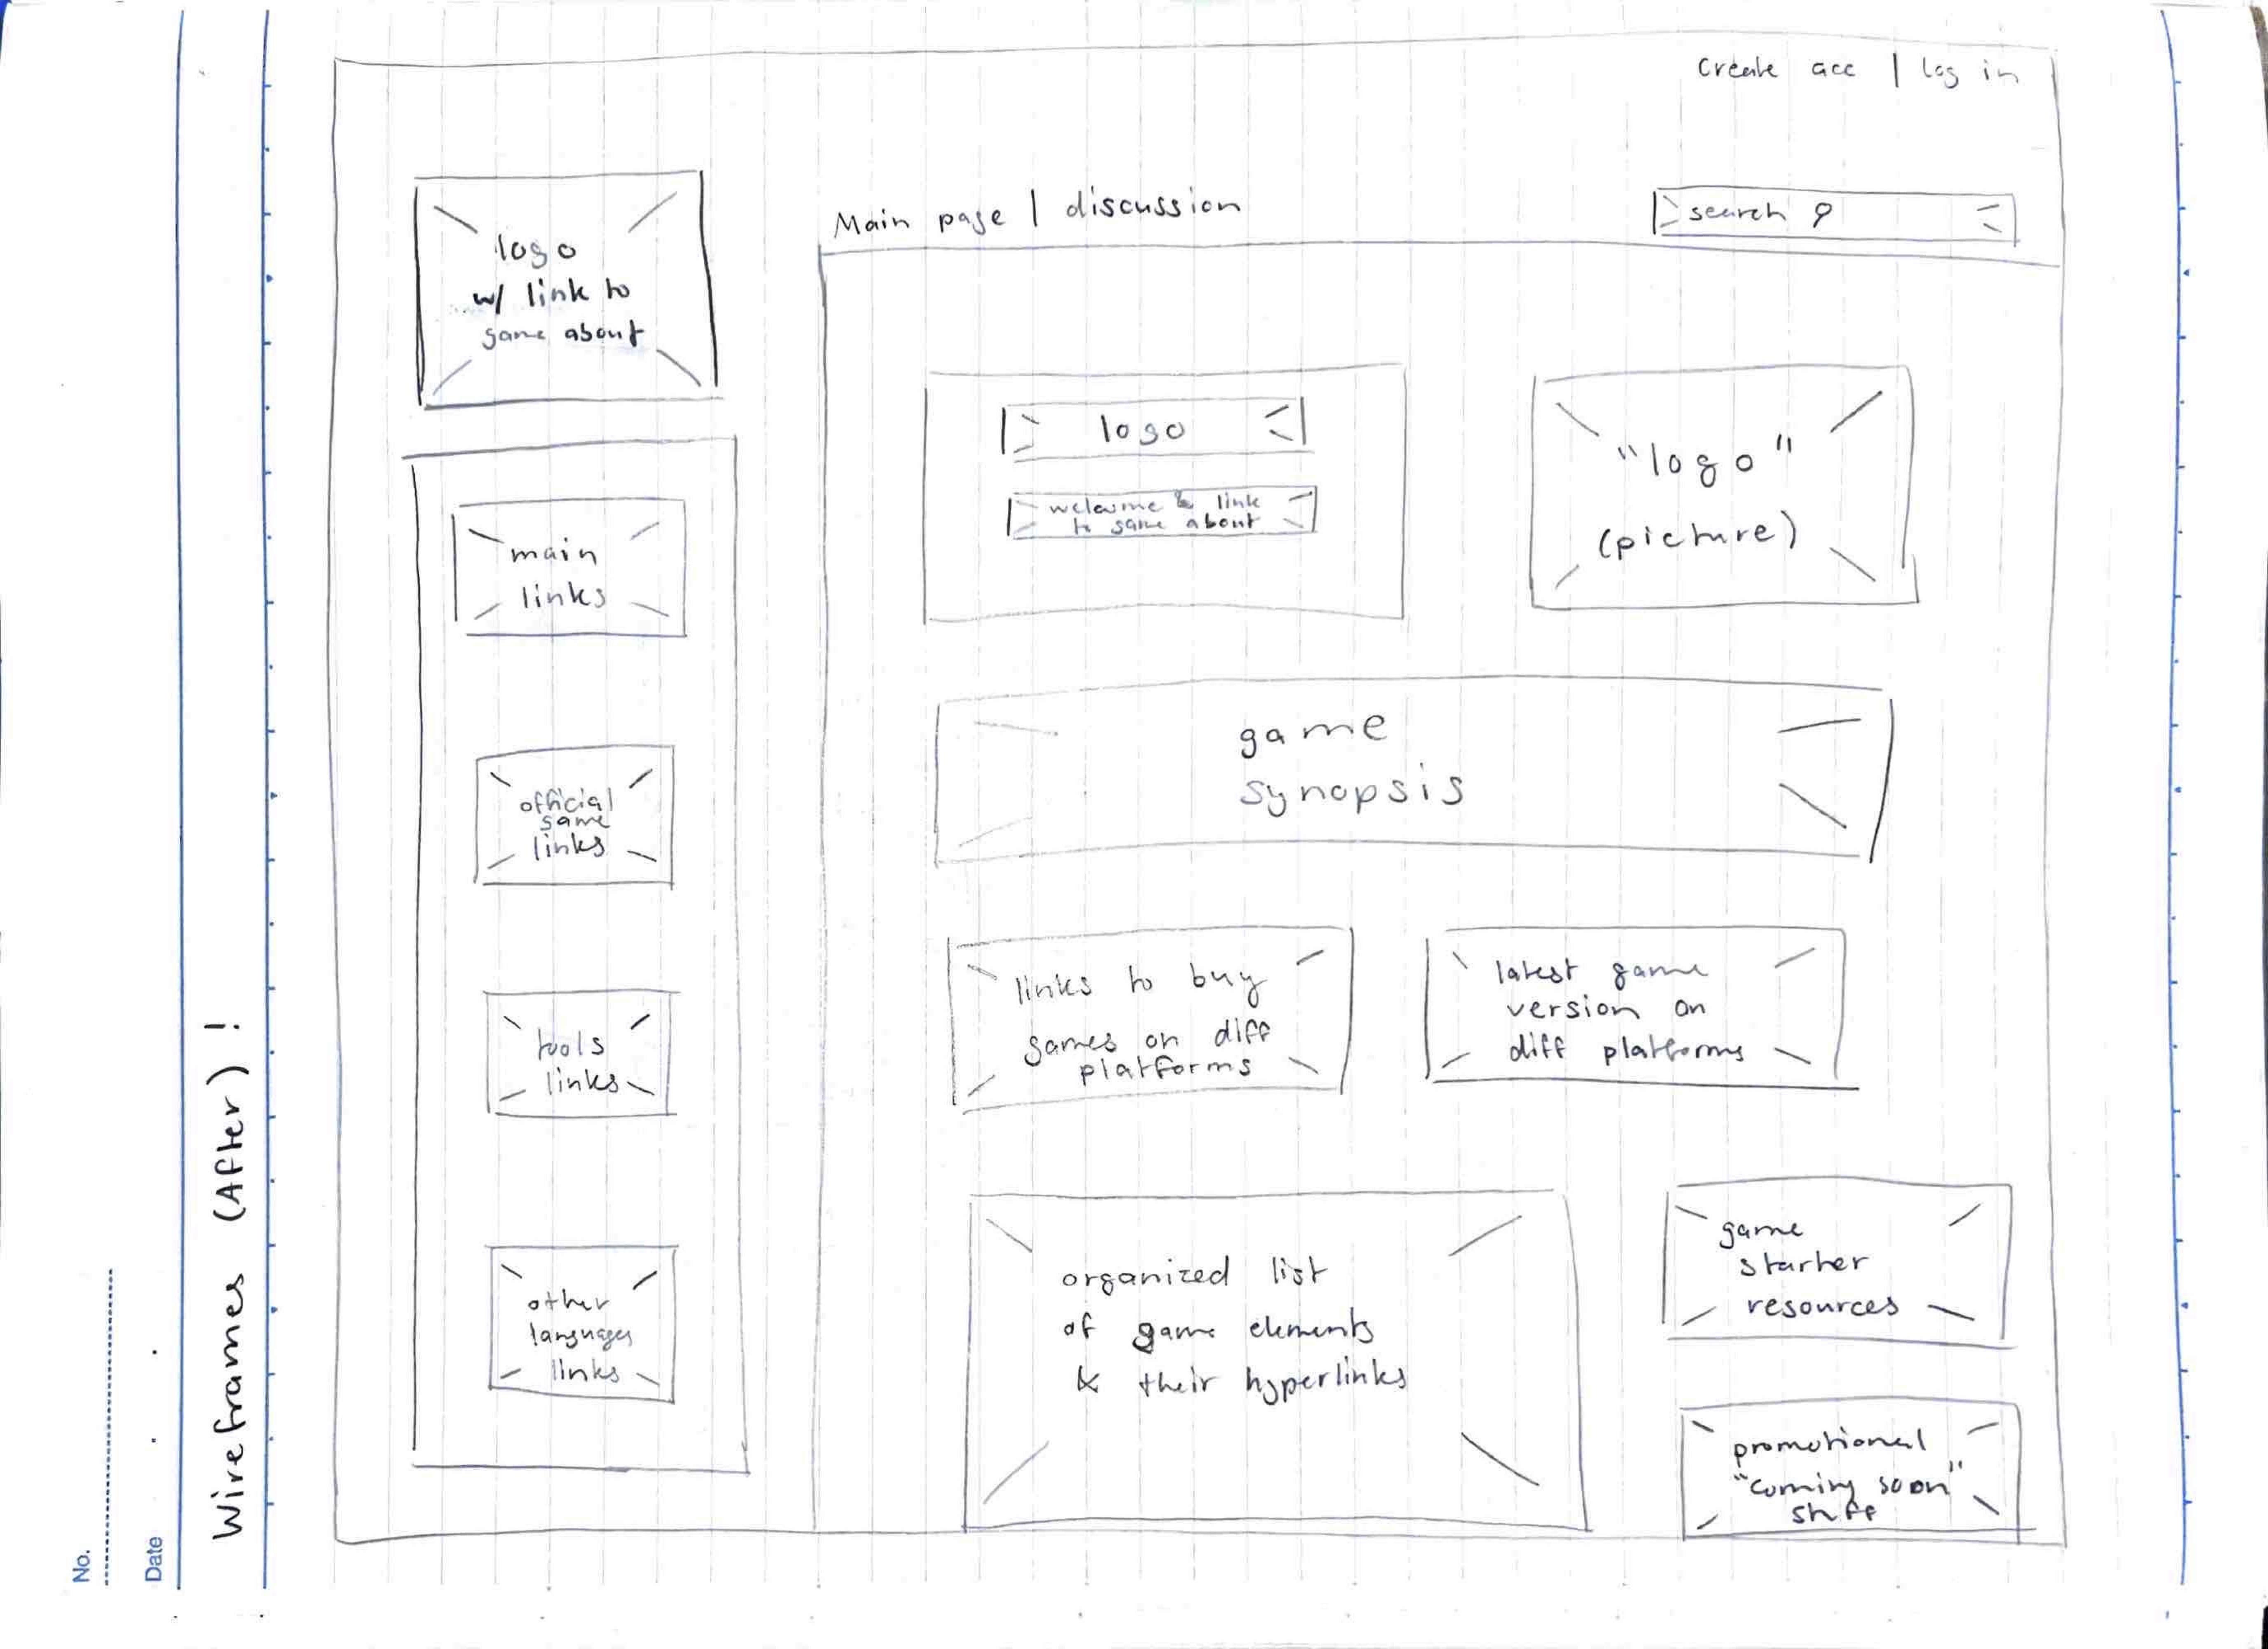 No.
Date
Wireframes (After)!
Create acc | log in
Main page | discussion
search
logo
w/ link to
game about
main
links
official
game
links
tools
links
other
languages
links
logo
welcome & link
to game about
"logo"
(picture)
game
synopsis
links to buy
games on diff
platforms
latest game
version on
diff platforms
organized list
of game elements
& their hyperlinks
game
starter
resources
promotional
"coming soon"
stuff